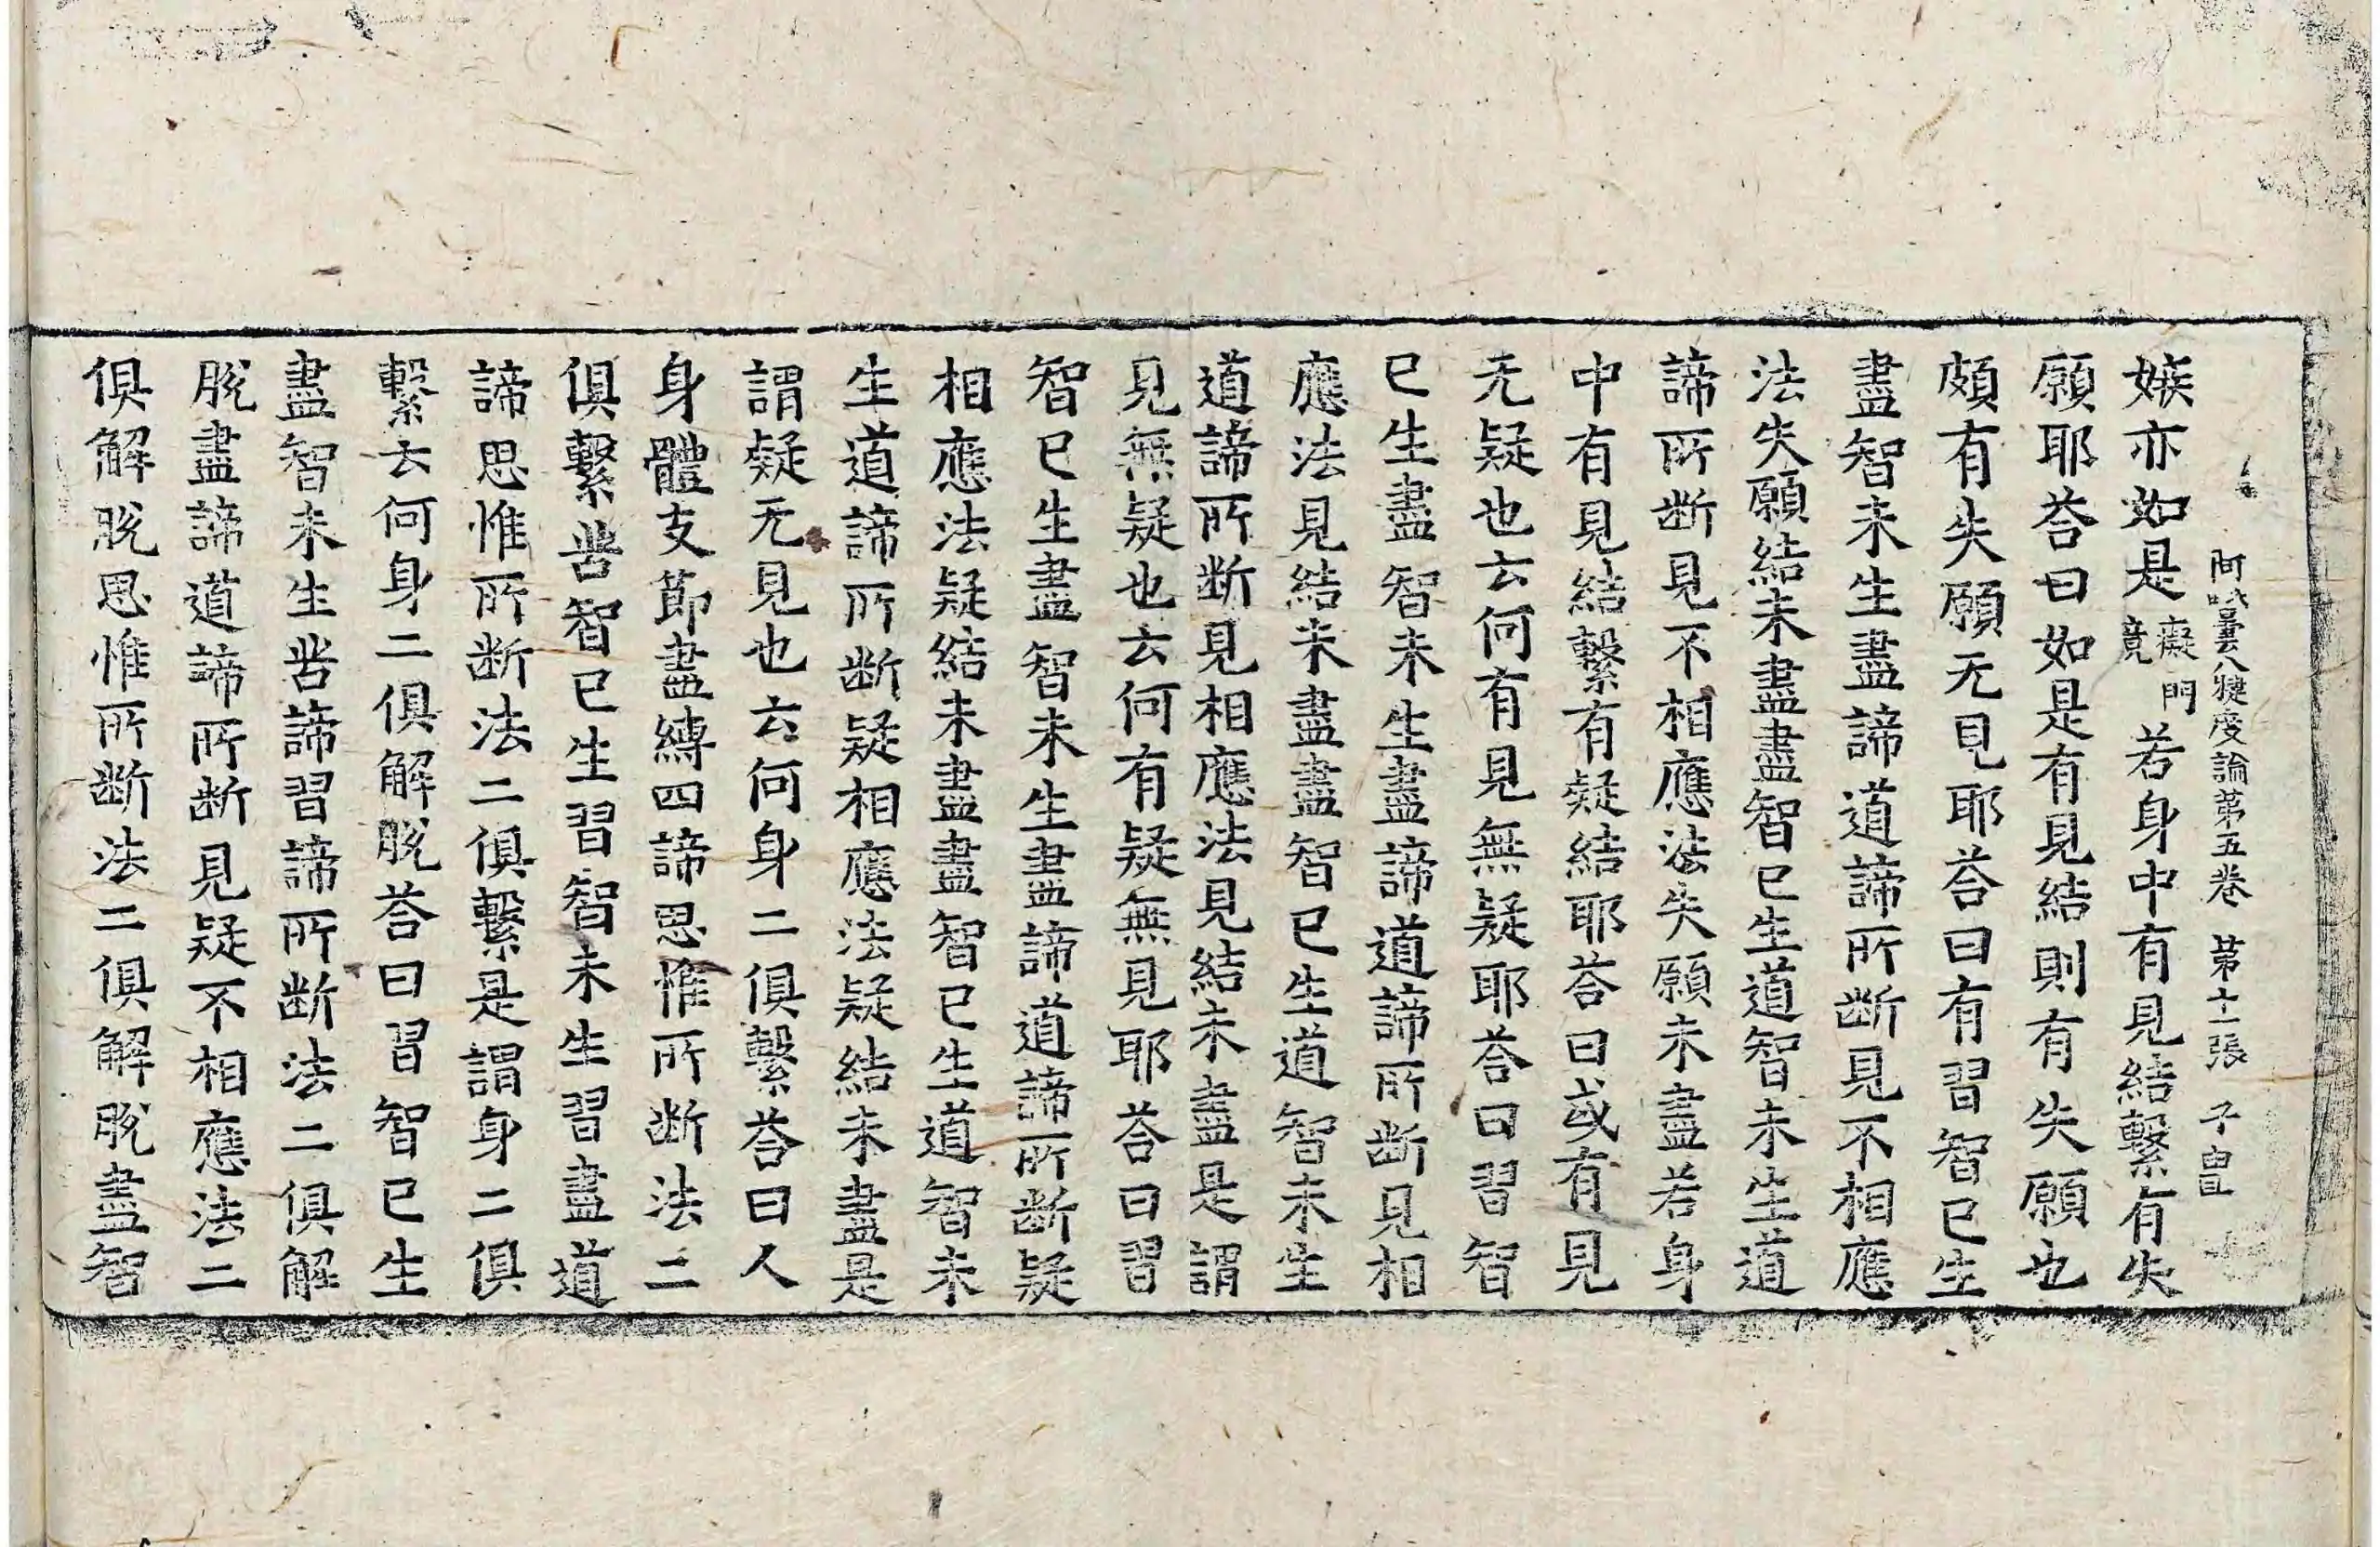 阿毗曇八犍度論第五卷　第十一張　子
嫉亦如是癡門竟若身中有見結繫有失
願耶荅曰如是有見結則有失願也
頗有失願无見耶荅曰有習智已生
盡智未生盡諦道諦所断見不相應
法失願結未盡盡智已生道智未生道
諦所断見不相應法失願未盡若身
中有見結繫有疑結耶荅曰或有見
无疑也云何有見無疑耶荅曰習智
已生盡智未生盡諦道諦所断見相
應法見結未盡盡智已生道智未生
道諦所断見相應法見結未盡是謂
見無疑也云何有疑無見耶荅曰習
智已生盡智未生盡諦道諦所断疑
相應法疑結未盡盡智已生道智未
生道諦所断疑相應法疑結未盡是
謂疑无見也云何身二俱繫荅曰人
身體支節盡縛四諦思惟所断法二
俱繫苦智已生習智未生習盡道
諦思惟所断法二俱繫是謂身二俱
繫云何身二俱解脫荅曰習智已生
盡智未生苦諦習諦所断法二俱解
脫盡諦道諦所断見疑不相應法二
俱解脫思惟所断法二俱解脫盡智